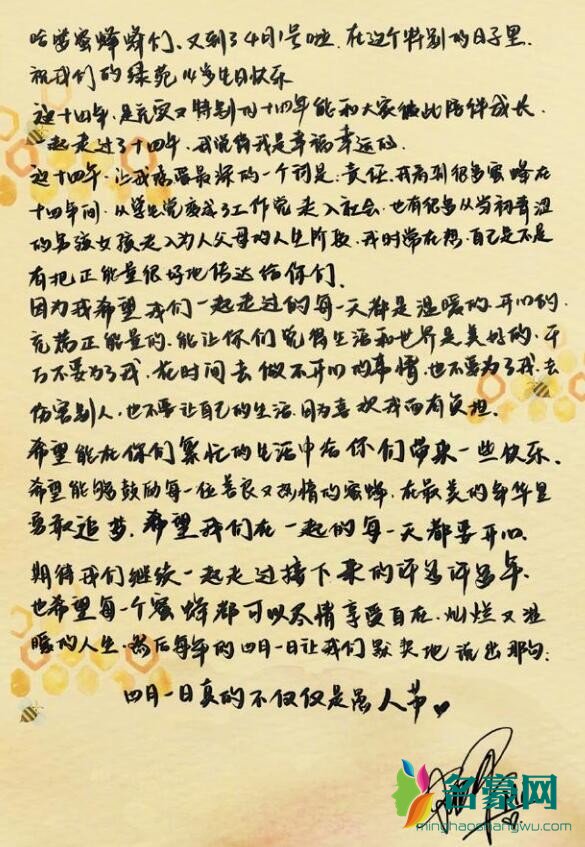 哈喽蜜蜂蜂们、又到了4月1号啦．在这个特别的日子里．
祝我们的绿苑心学生日快乐
这十四年，是充实又特别的十四年能和大家彼此陪伴成长．
一起走过了十四年．我觉得我是幸福幸运的．
这十四年，让我感受最深的一个词是：责任．我看到很多蜜蜂在
十四年间．从学生党变成了工作党走入社会．也有很多从当初青涩
的男孩女孩走入为人父母的人生阶段，我时常在想．自己是不是
有把正能量很好地传达给你们．
因为我希望我们一起走过的每一天都是温暖的．开心的．
充满正能量的．能让你们觉得生活和世界是美好的．千
万不要为了我．花时间去做不开心的事情．也不要为了我．去
伤害别人，也不要让自己的生活．因为喜欢我而有负担．
希望能在你们繁忙的生活中给你们带来一些快乐．
希望能够鼓励每一位善良又热情的蜜蜂．在最美的年华里
勇敢追梦．希望我们在一起的每一天都要开心．
期待我们继续一起走过接下来的许多许多年．
也希望每一个蜜蜂都可以尽情享受自在．灿烂又温
暖的人生．然后每年的四月一日让我们默契地说出那句：
四月一日真的不仅仅是愚人节
名豪网
minghaoshangwu.com